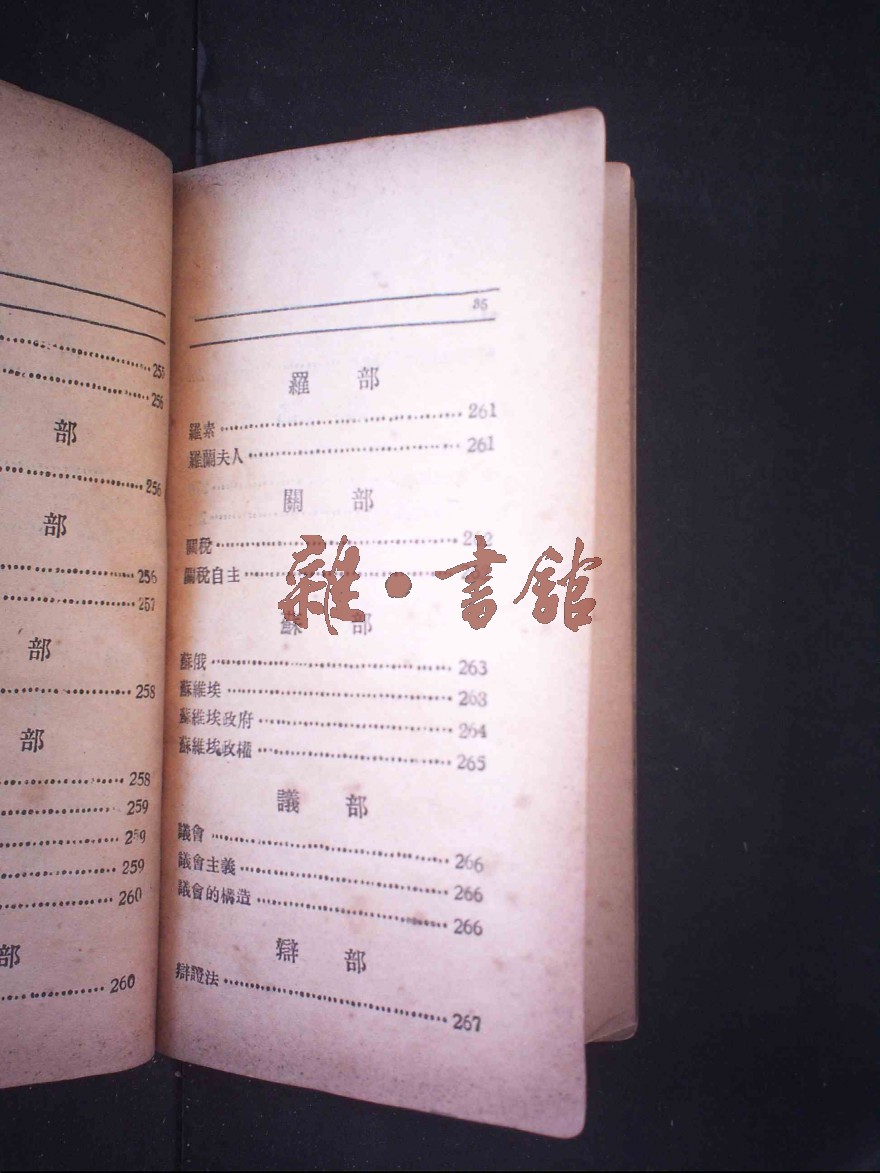 255
256
部
256
部
256
257
部
258
部
258
259
259
259
260
部
260
35
羅 部
羅素 261
羅蘭夫人 261
關 部
關稅 262
關稅自主
蘇 部
蘇俄 263
蘇維埃 263
蘇維埃政府 264
蘇維埃政權 265
議 部
議會 266
議會主義 266
議會的構造 266
辯 部
辯證法 267
雜·書館